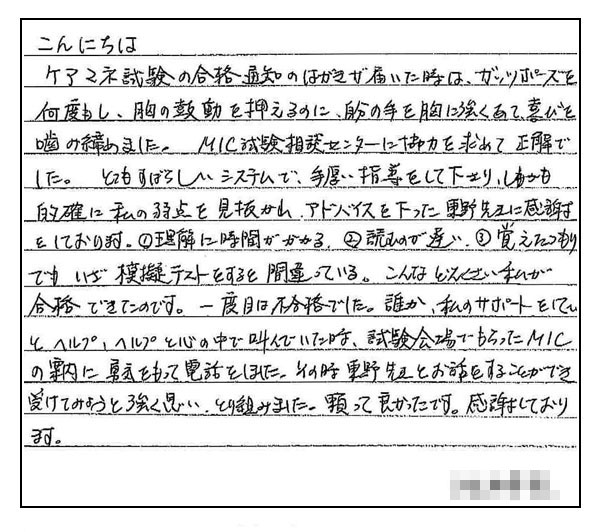 こんにちは
ケアマネ試験の合格通知のはがきが届いた時は、ガッツポーズを
何度もし、胸の鼓動を押えるのに、自分の手を胸に強くあて、喜びを
噛み締めました。 MIC試験相談センターに協力を求めて正解で
した。 とてもすばらしいシステムで、手厚い指導をして下さり、しかも
的確に私の弱点を見抜かれ、アドバイスを下った東野先生に感謝
をしております。①理解に時間がかかる、②読むのが遅い、③覚えたつもり
でもいざ模擬テストをすると間違っている。こんなどんくさい私が
合格できたのです。一度目は不合格でした。誰か、私のサポートをしてい
と、ヘルプ、ヘルプと心の中で叫んでいた時、試験会場でもらったMIC
の案内に勇気をもって電話をしました。その時東野先生とお話をすることができ
受けてみようと強く思い、とり組みました。願って良かったです。感謝しており
ます。